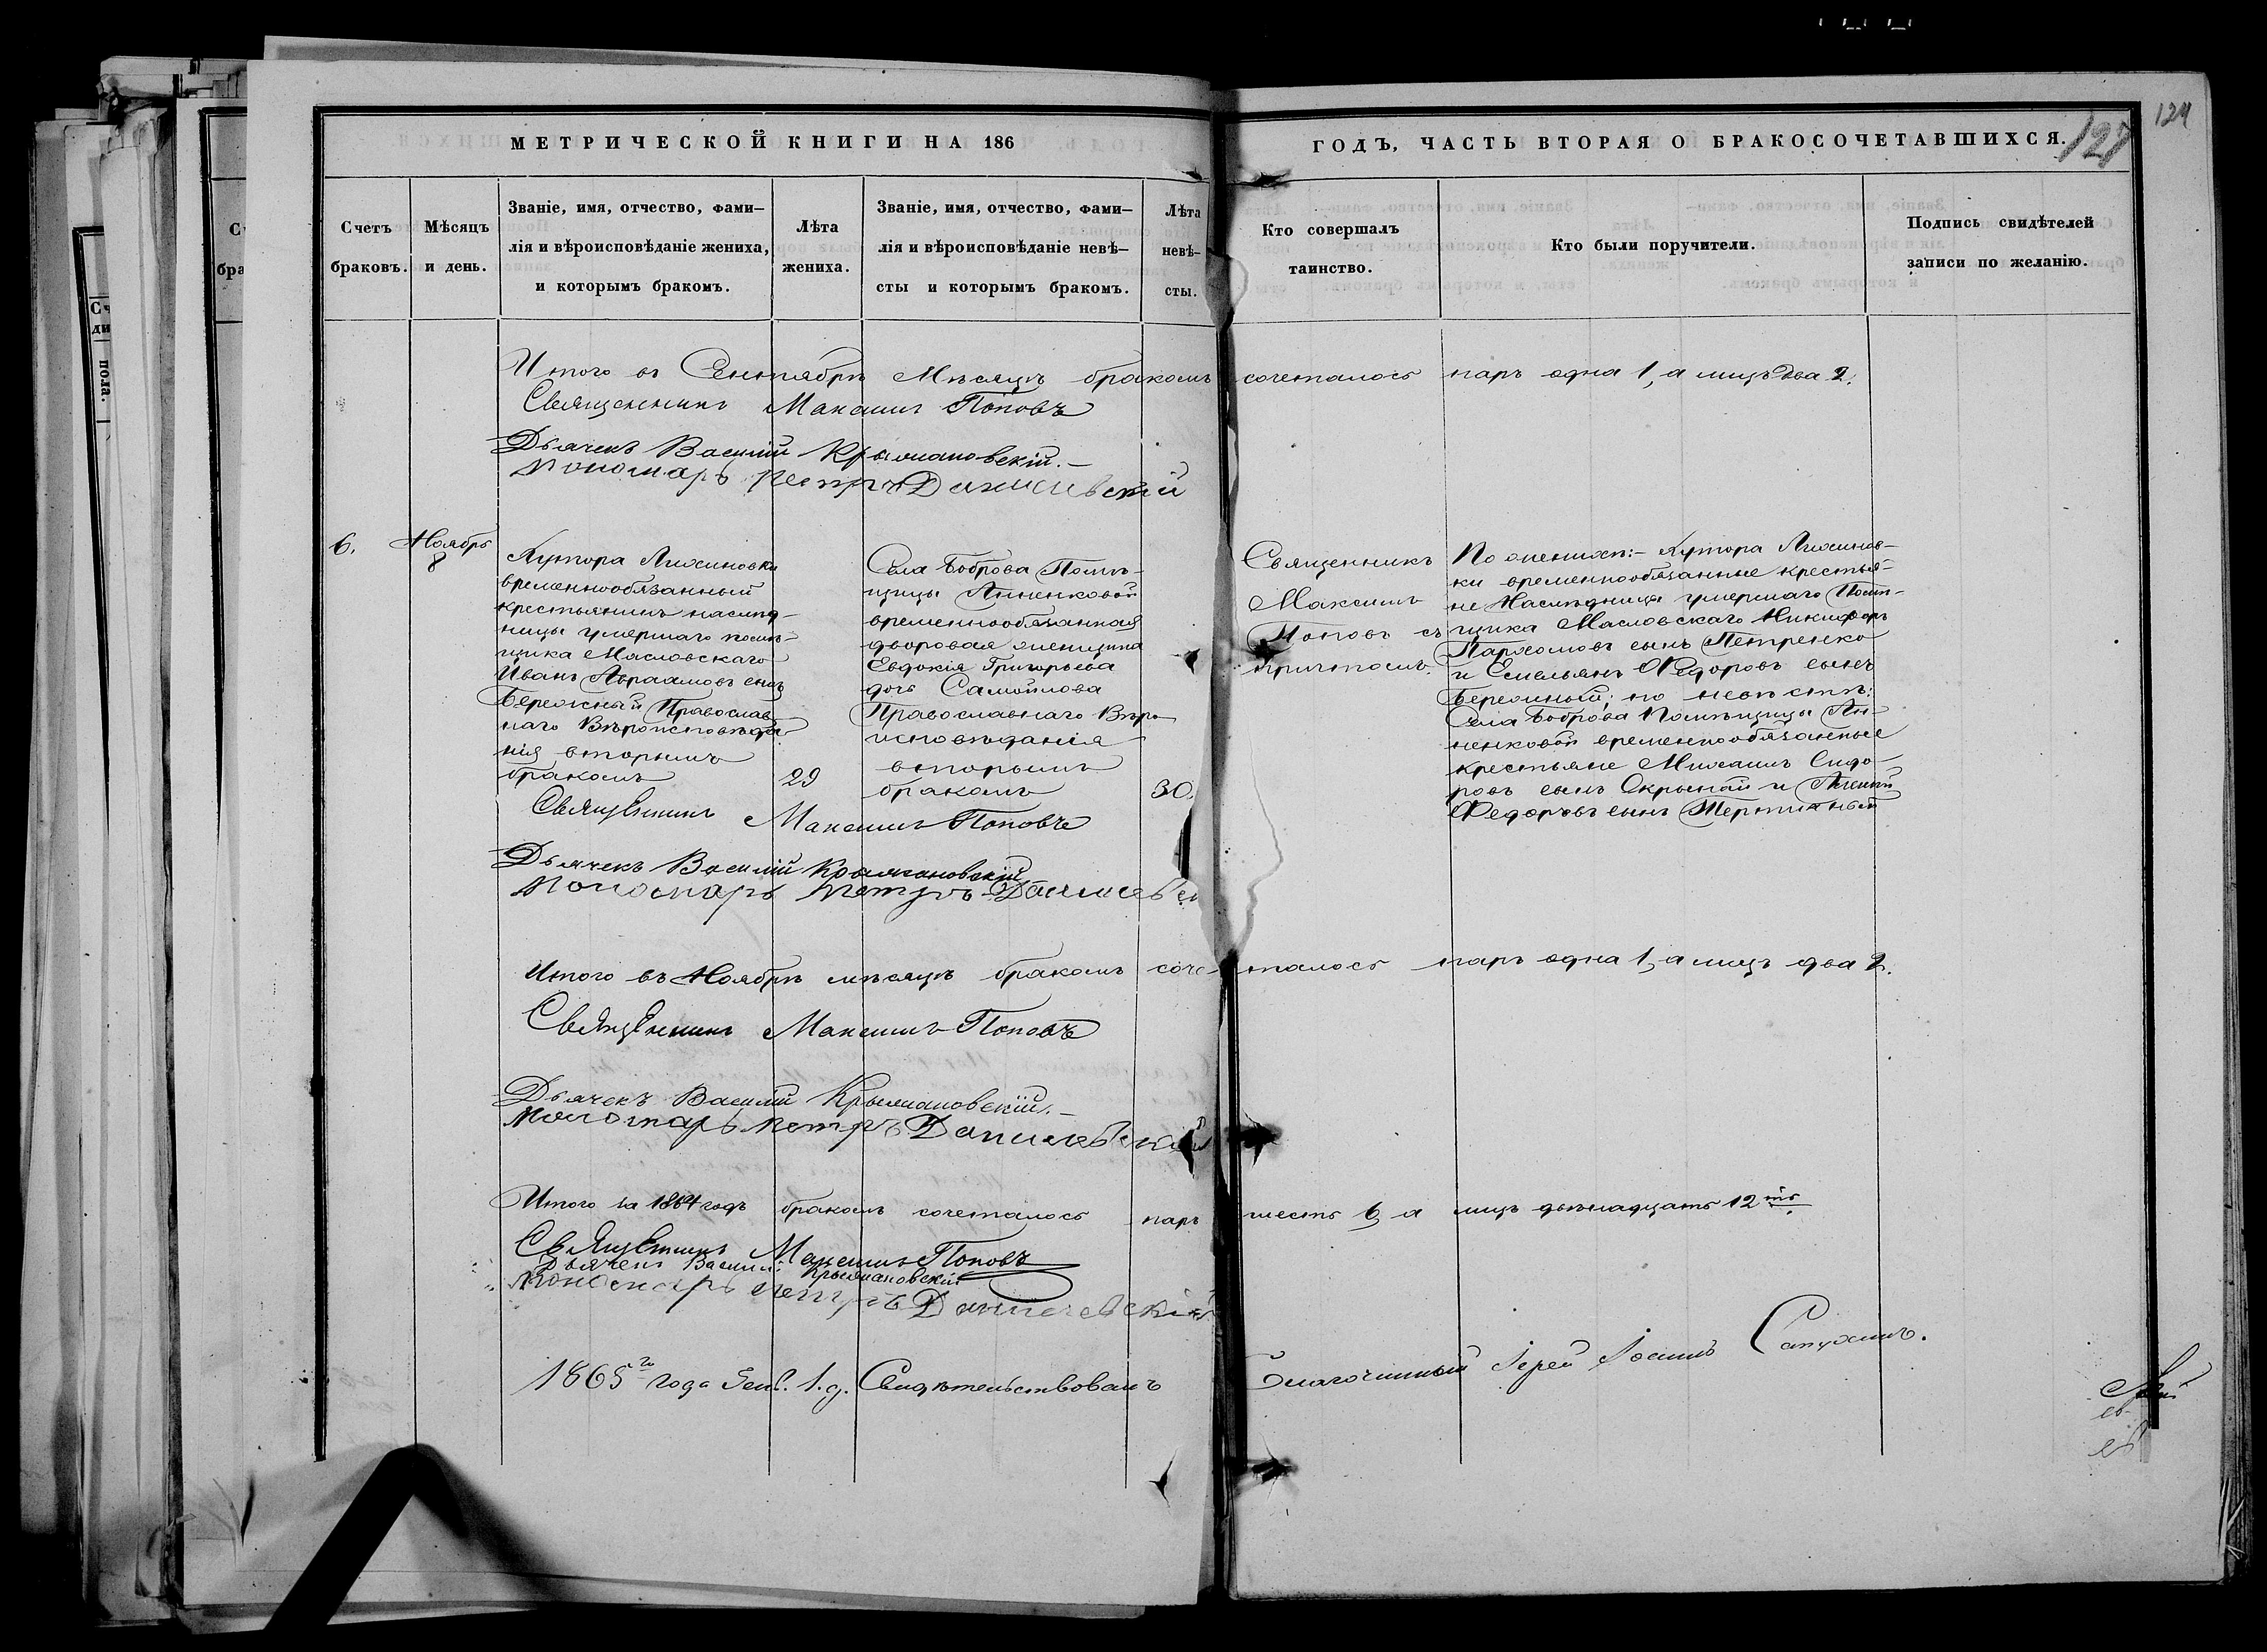 124
127
МЕТРИЧЕСКОЙ КНИГИ НА 186
ГОДЪ, ЧАСТЬ ВТОРАЯ О БРАКОСОЧЕТАВШИХСЯ.
Счетъ
браковъ.
Мѣсяцъ
и день.
Званіе, имя, отчество, фами–
лія и вѣроисповѣданіе жениха,
и которымъ бракомъ.
Лѣта
жениха.
Званіе, имя, отчество, фами–
лія и вѣроисповѣданіе невѣ–
сты и которымъ бракомъ.
Лѣта
невѣ–
сты.
Кто совершалъ
таинство.
Кто были поручители.
Подпись свидѣтелей
записи по желанію.
Итого въ Сентябрѣ Мѣсяцѣ бракомъ сочеталось паръ одна 1, а лицъ два 2.
Священникъ Максимъ Поповъ
Дьячекъ Василій Крыжановскій.–
Пономарь Петръ Данилевскій
6.
Ноябрь
8
Хутора Лихиновки
временнообязанный
крестьянинъ наслѣд-
ницы умершаго помѣ-
щика Масловскаго
Иванъ Авраамовъ сынъ
Бережный Православ
наго Вѣроисповѣда
нія вторымъ
бракомъ
29
Села Боброва Помѣ-
щицы Анненковой
временнообязанная
дворовая женщина
Евдокія Григорьева
дочь Самойлова
Православнаго Вѣро
исповѣданія
вторымъ
бракомъ
30.
Священникъ
Максимъ
Поповъ съ
причтомъ.
По женихѣ:– Хутора Лихинов-
ки временнообязанные крестья-
не Наслѣдницы умершаго Помѣ-
щика Масловскаго Никифоръ
Пархомовъ сынъ Петренко
и Емельянъ Федоровъ сынъ
Бережный; по невѣстѣ:
Села Боброва Помѣщицы Ан-
ненковой временнообязанные
крестьяне Михаилъ Сидо-
ровъ сынъ и
Федоровъ сынъ
Священникъ Максимъ Поповъ
Дьячекъ Василій Крыжановскій
Пономарь Петръ Данилевск
Итого въ Ноябрѣ мѣсяцѣ бракомъ сочеталось паръ одна 1, а лицъ два 2.
Священникъ Максимъ Поповъ
Дьячекъ Василій Крыжановскій.–
Пономарь Петръ Данилевскій
Итого за 1864 годъ бракомъ сочеталось паръ шесть 6, а лицъ двѣнадцать 12ть.
Священникъ Максимъ Поповъ
Дьячекъ Василій Крыжановскій
Пономарь Петръ Данилевскій
1865го года Генв. 1. д. Свидѣтельствовалъ Благочинный Іерей